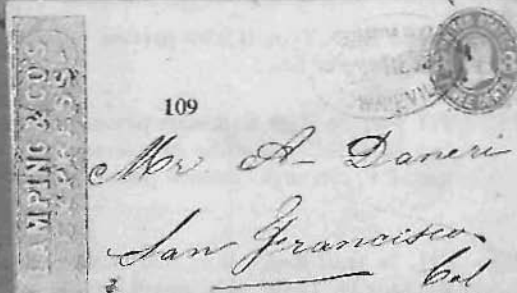 LAMPING & CO'S
EXPRESS
109
Mr. A- Daneri
San Francisco
Cal